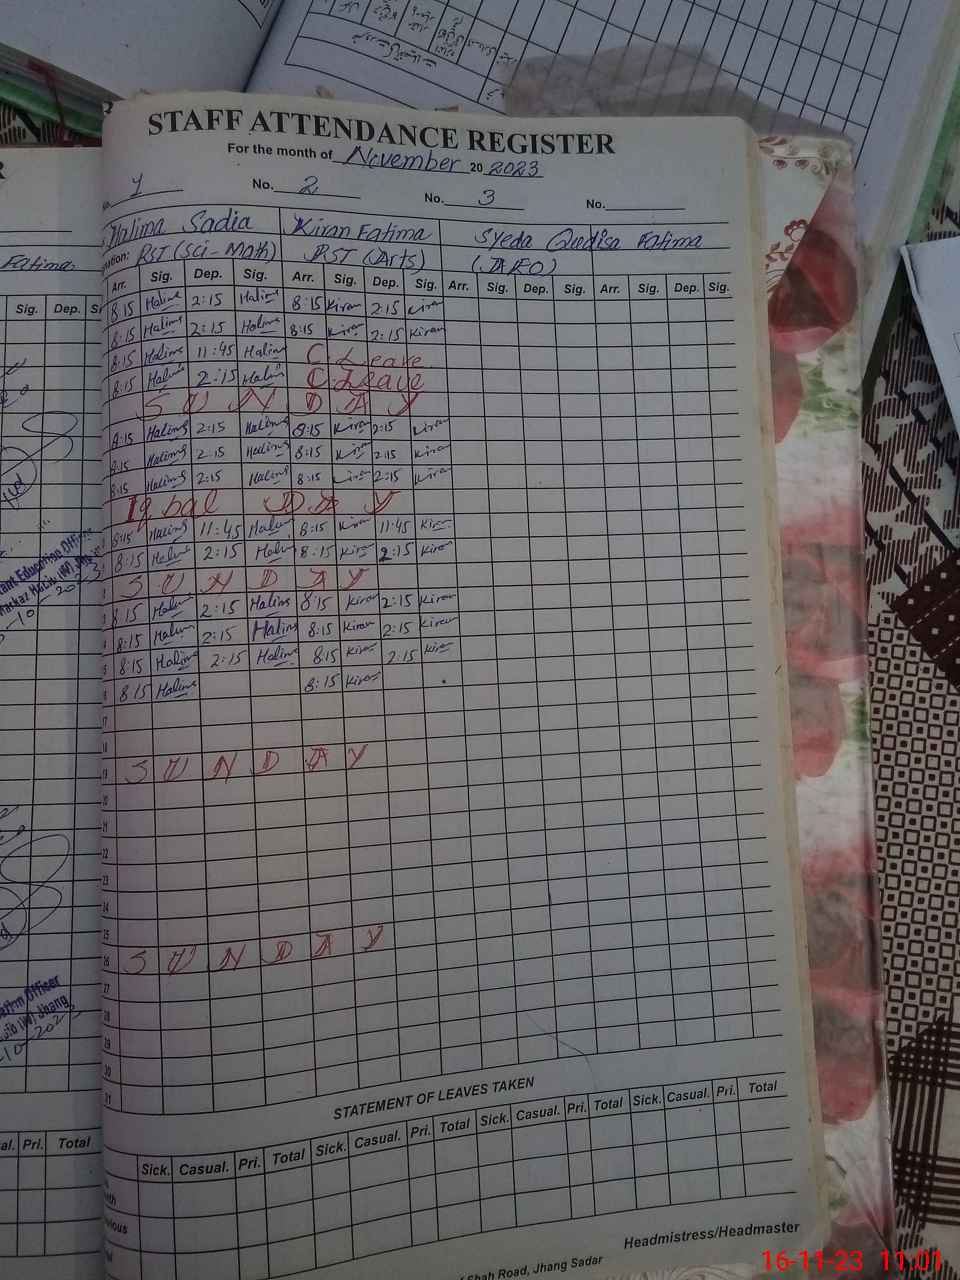 STAFF ATTENDANCE REGISTER
For the month of November 20 2023
1 No. 2 No. 3 No.
Halima Sadia Kiran Fatima Syeda Qudisa Fatima
PST (Sci-Math) PST (Arts) (AEO)
Arr. Sig. Dep. Sig. Arr. Sig. Dep. Sig. Arr. Sig. Dep. Sig. Arr. Sig. Dep. Sig.
8:15 Halima 2:15 Halima 8:15 Kiran 2:15 Kiran
8:15 Halima 2:15 Halima 8:15 Kiran 2:15 Kiran
8:15 Halima 11:45 Halima C.Leave
8:15 Halima 2:15 Halima C.Leave
S U N D A Y
8:15 Halima 2:15 Halima 8:15 Kiran 2:15 Kiran
8:15 Halima 2:15 Halima 8:15 Kiran 2:15 Kiran
8:15 Halima 2:15 Halima 8:15 Kiran 2:15 Kiran
Iqbal D a y
8:15 Halima 11:45 Halima 8:15 Kiran 11:45 Kiran
8:15 Halima 2:15 Halima 8:15 Kiran 2:15 Kiran
S U N D A Y
8:15 Halima 2:15 Halima 8:15 Kiran 2:15 Kiran
8:15 Halima 2:15 Halima 8:15 Kiran 2:15 Kiran
8:15 Halima 2:15 Halima 8:15 Kiran 2:15 Kiran
8:15 Halima 8:15 Kiran
17
18
19 S U N D A Y
20
21
22
23
24
25
26 S U N D A Y
27
28
29
30
31
STATEMENT OF LEAVES TAKEN
Sick. Casual. Pri. Total Sick. Casual. Pri. Total Sick. Casual. Pri. Total Sick. Casual. Pri. Total
Headmistress/Headmaster
Shah Road, Jhang Sadar
Fatima.
Sig. Dep.
Education Officer
Officer
Jhang
Pri. Total
16-11-23 11:01